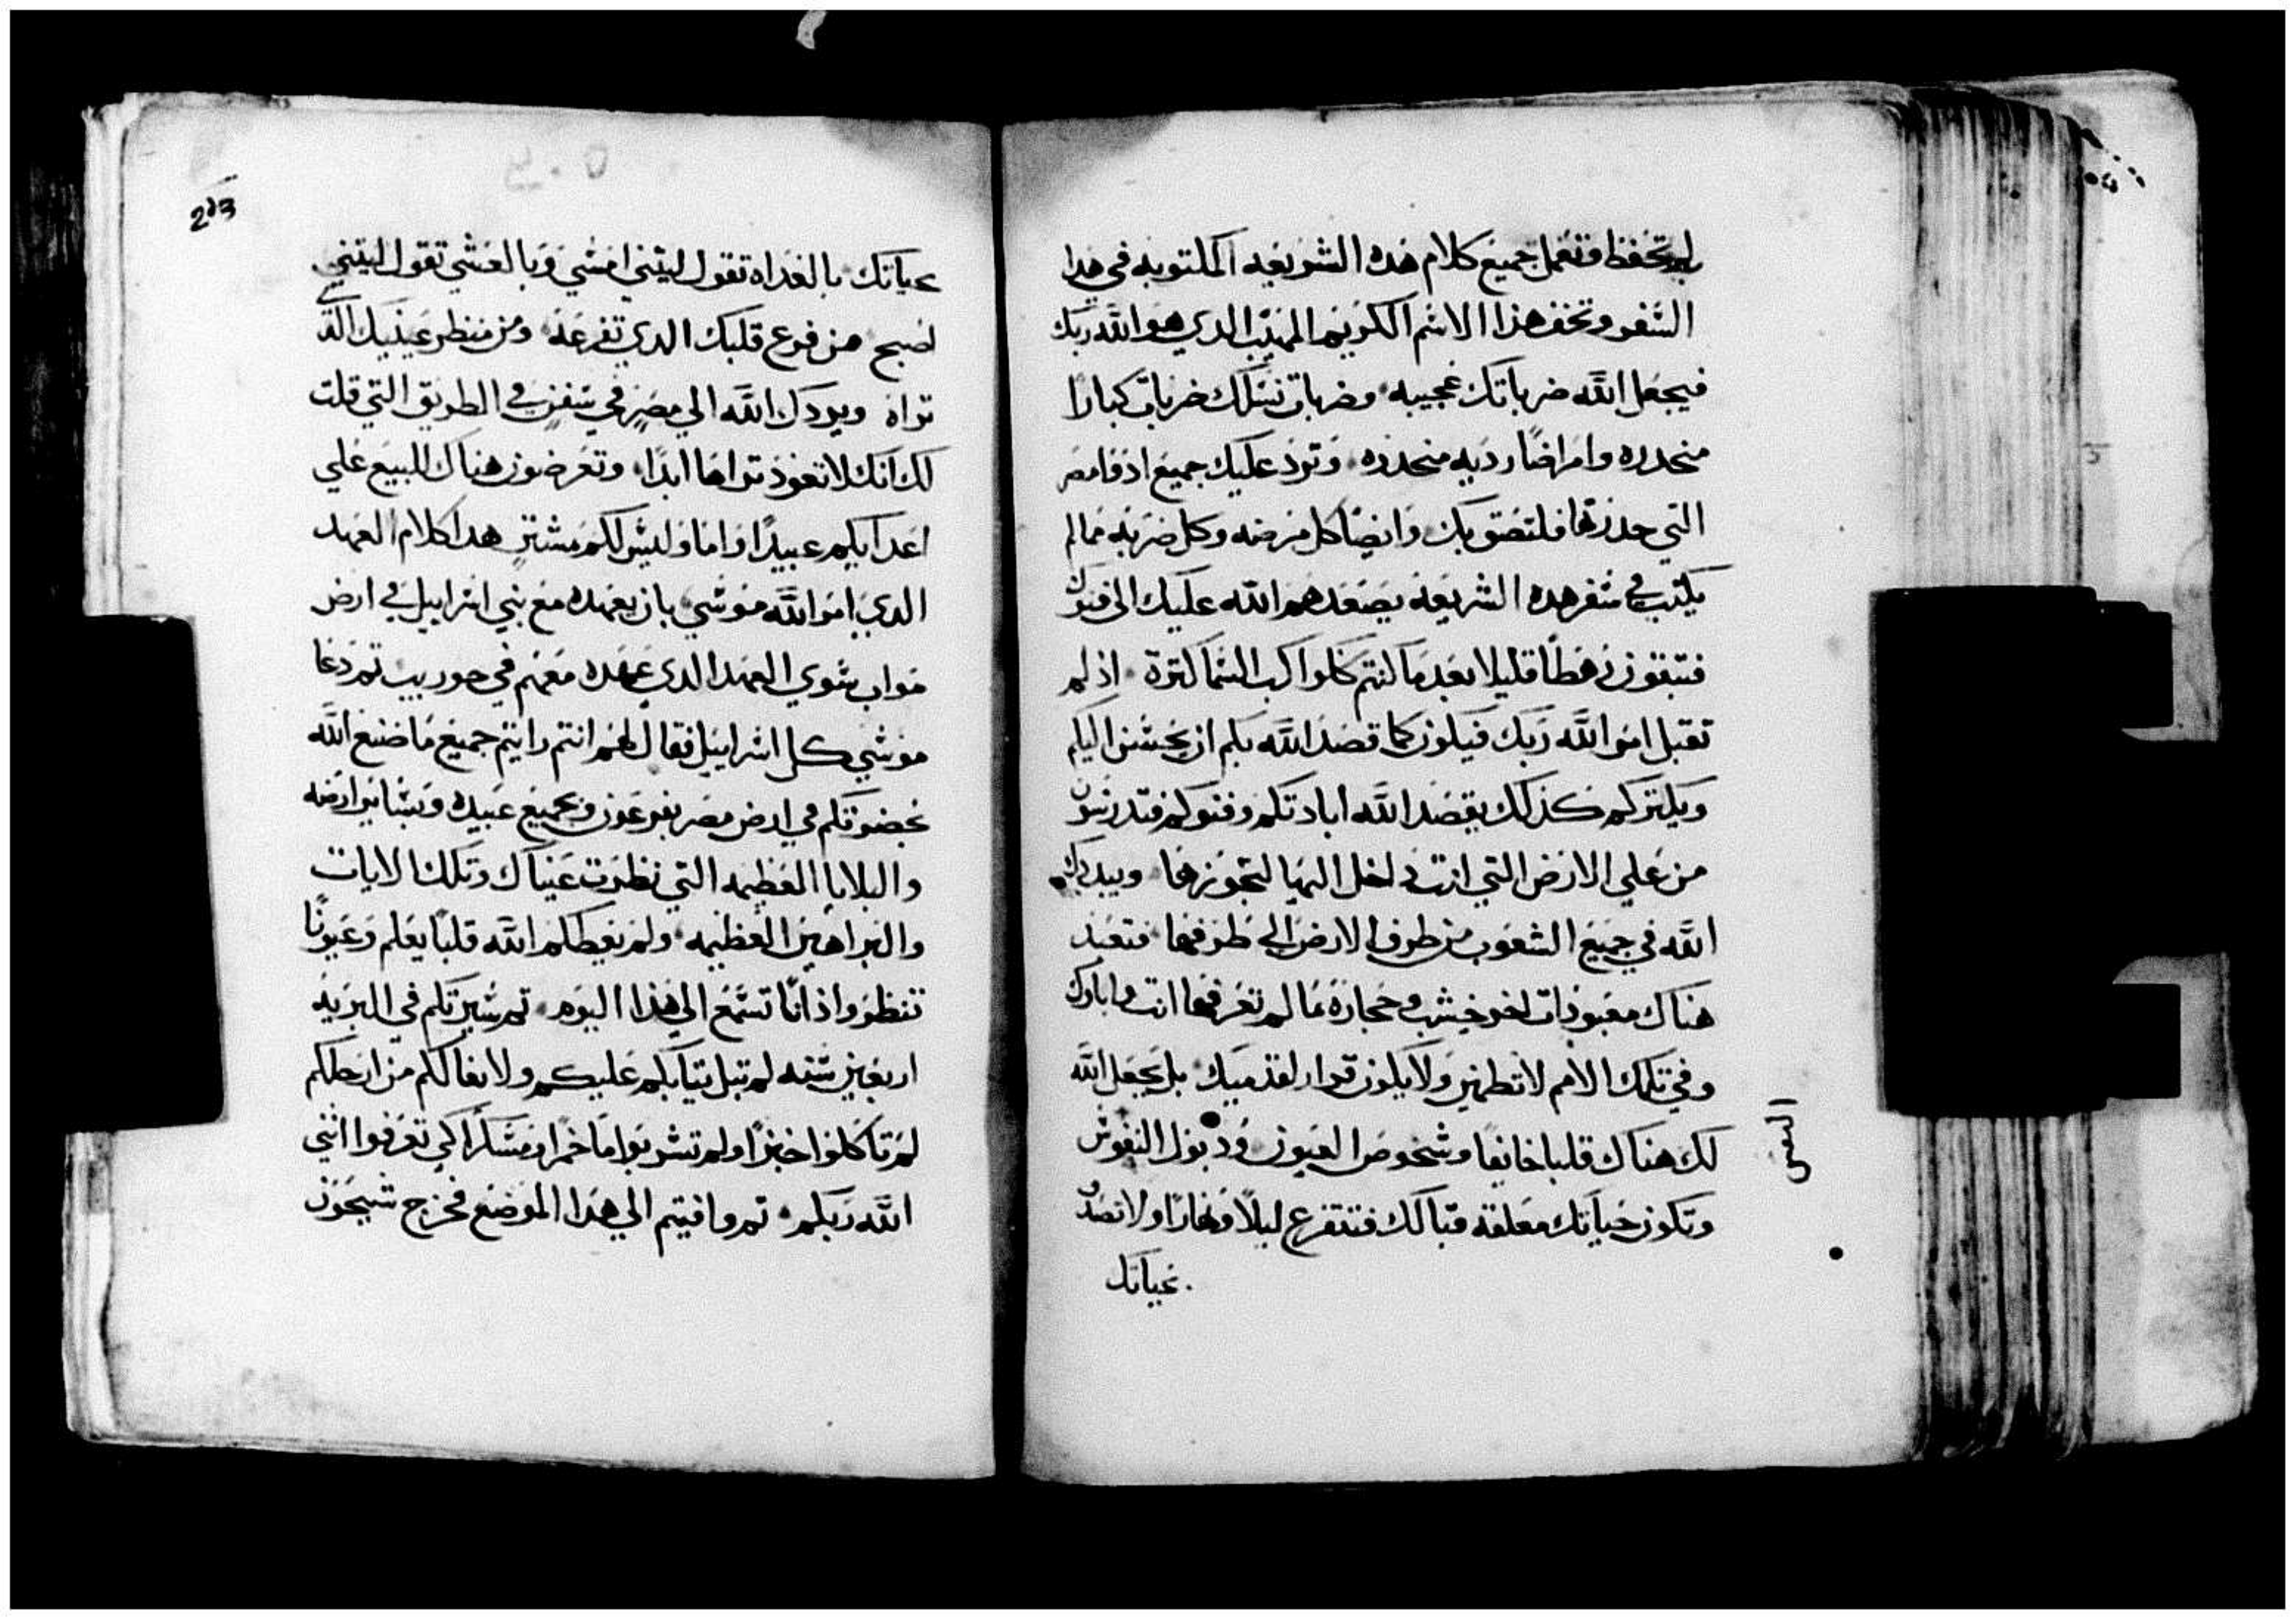 لم تحفظ وتعمل جميع كلام هده الشريعه المكتوبه في هدا
السفر وتخف هذا الاسم الكريم المهيب الدي هو الله ربك
فيجعل الله ضرباتك عجيبه وضربات نسلك ضربات كبارا
منحدره وامراضا رديه منحدره وترد عليك جميع ادوا مصر
التي حدرتها فلتصق بك وايضا كل مرضه وكل ضربه مما لم
يكتب في سفر هده الشريعه يصعدهم الله عليك الى فنوك
فتبقون رهطا قليلا بعد ما كنتم ككواكب السما كترة اذ لم
تقبل امر الله ربك فيكون كما قصد الله بكم ان يحسن اليكم
ويكتركم كذلك يقصد الله ابادتكم وفنوكم فتدرسون
من على الارض التي انت داخل اليها لتحوزها ويبددك
الله في جميع الشعوب من طرف الارض الى طرفها فتعبد
هناك معبودات اخر خشب وحجارة مما لم تعرفها انت واباوك
وفي تلك الامم لا تطمين ولا يكون قرار لقدميك بل يجعل الله
لك هناك قلبا خايفا وشخوص العيون ودبول النفوس
النفس
وتكون حياتك معلقه قبالك فتتفزع ليلا ونهارا ولا تصدق
بحياتك
213
بحياتك بالغداه تقول ليتني امسي وبالعشي تقول ليتني
اصبح من فزع قلبك الدي تفزعه ومن منظر عينيك الدي
تراه ويردك الله الي مصر في سفن في الطريق التي قلت
لك انك لا تعود تراها ابدا وتعرضون هناك للبيع على
اعدايكم عبيدا واما وليس لكم مشتر هدا كلام العهد
الدي امر الله موسي بان يعهده مع بني اسراييل في ارض
مواب سوي العهد الدي عهده معهم في حوريب تم دعا
موسي كل اسراييل فقال لهم انتم رايتم جميع ما صنع الله
بحضرتكم في ارض مصر بفرعون وبجميع عبيده وبساير ارضه
والبلايا العظيمه التي نظرت عيناك وتلك الايات
والبراهين العظيمه ولم يعطكم الله قلبا يعلم وعيونا
تنظر واذانا تسمع الي هذا اليوم تم سيرتكم في البريه
اربعين سنه لم تبل تيابكم عليكم ولا نعالكم من ارجلكم
لم تاكلوا خبزا ولم تشربوا ما خمرا ومسكرا كي تعرفوا انني
الله ربكم تم وافيتم الى هدا الموضع فخرج سيحون